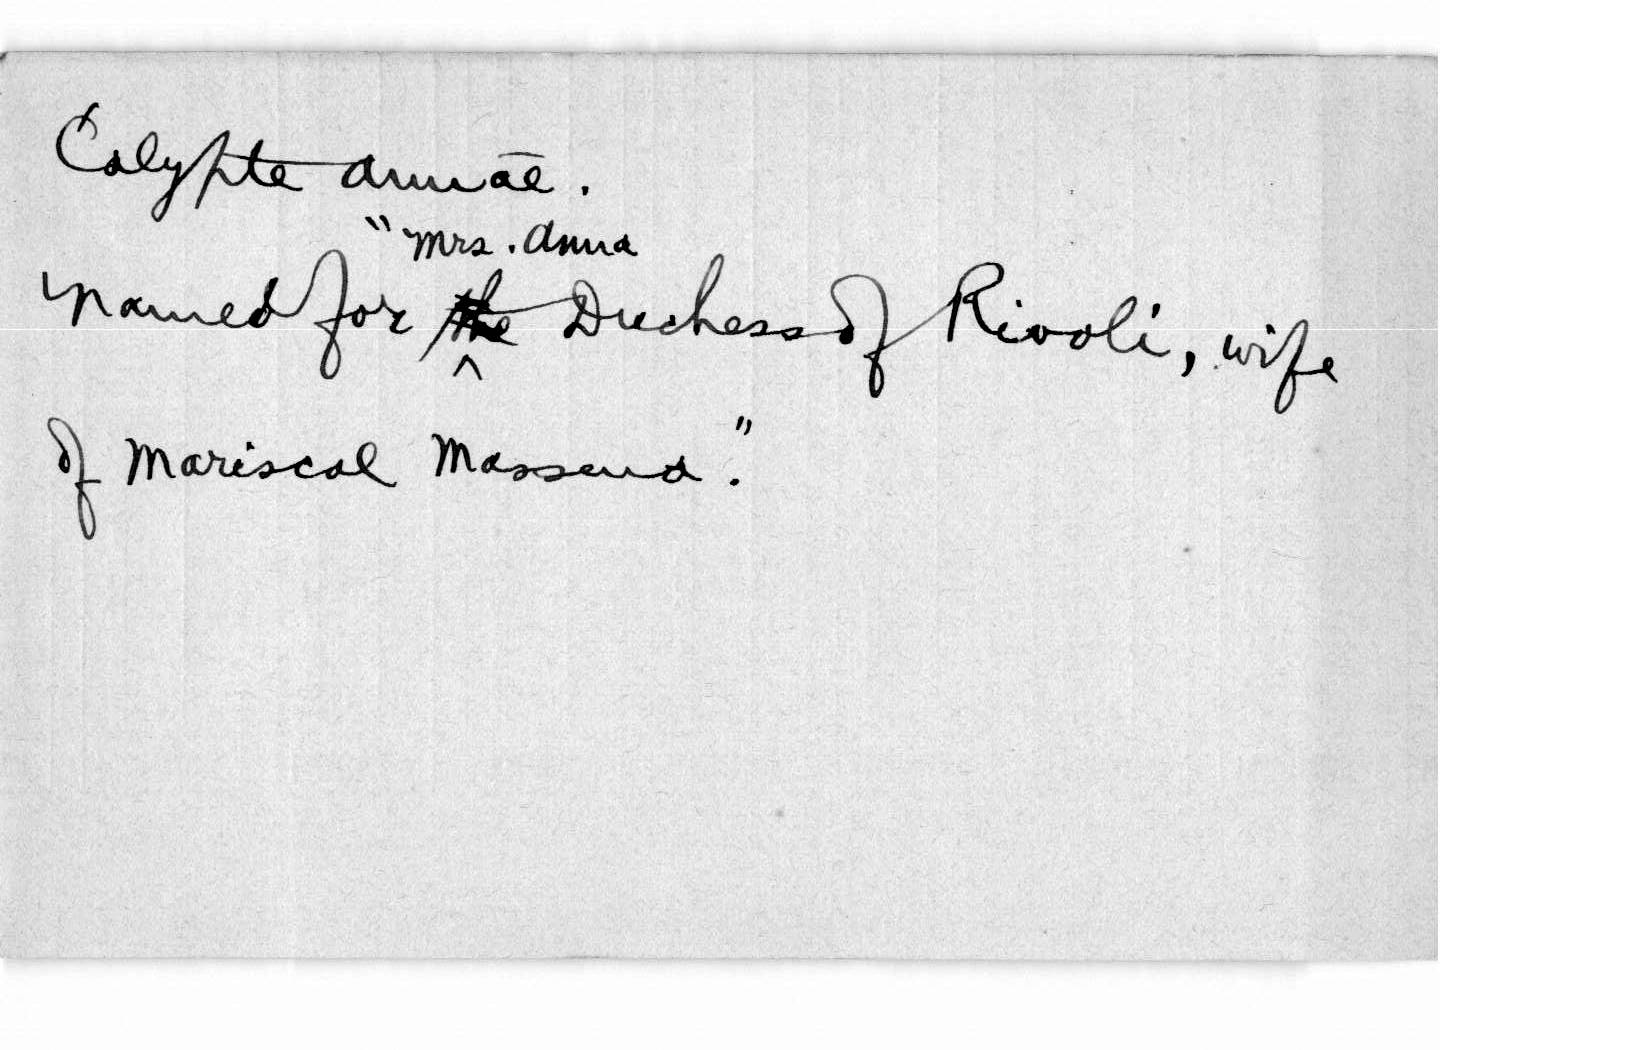 Calypte annāe.
"Mrs. Anna
Named for the Duchess of Rivoli, wife
^
of Mariscal Massena."